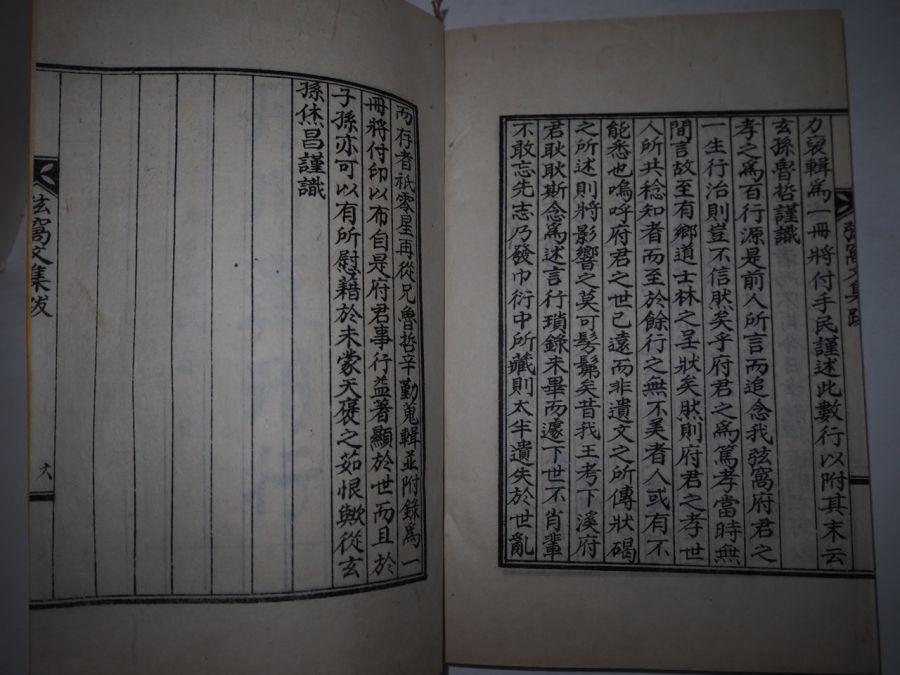 力裒輯爲一冊將付手民謹述此數行以附其末云
玄孫魯哲謹識
孝之爲百行源是前人所言而追念我弦窩府君之
一生行治則豈不信然矣乎府君之爲篤孝當時無
間言故至有鄉道士林之呈狀矣然則府君之孝世
人所共稔知者而至於餘行之無不美者人或有不
能悉也嗚呼府君之世已遠而非遺文之所傳狀碣
之所述則將影響之莫可髣髴矣昔我王考下溪府
君耿耿斯念爲述言行瑣錄未畢而遽下世不肖輩
不敢忘先志乃發巾衍中所藏則太半遺失於世亂
弦窩文集跋
而存者祇零星再從兄魯哲辛勤蒐輯並附錄爲一
冊將付印以布自是府君事行益著顯於世而且於
子孫亦可以有所慰藉於未蒙天褒之茹恨歟從玄
孫烋昌謹識
弦窩文集跋